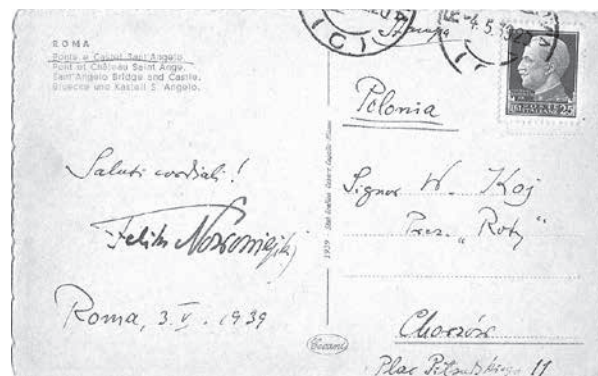 ROMA
Ponte e Castel Sant'Angelo.
Pont et Château Saint Ange.
Sant'Angelo Bridge and Castle.
Bruecke und Kastell S. Angelo.
Saluti cordiali!
Feliks Nowowiejski
Roma, 3. V. 1939
1939
Cesare Capello Milano
Stampa
4.5.39
25
Polonia
Signor W. Koj
Prez. „Roty"
Chorzów
Plac Piłsudskiego 11